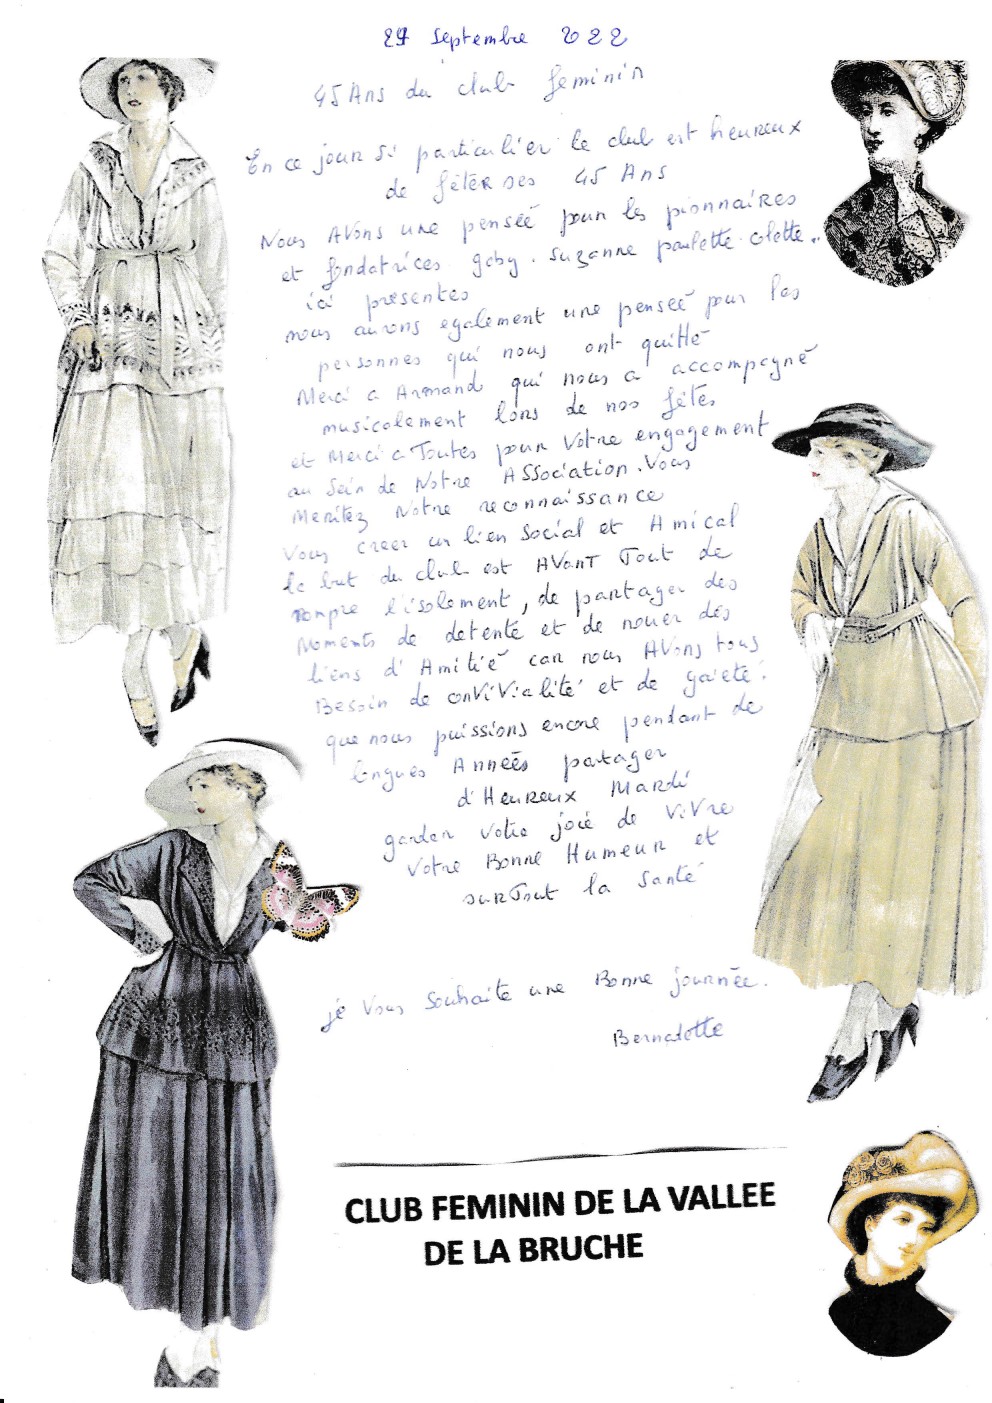 Septembre 2022
45 Ans du club feminin
En ce jour si particulier le club est heureux
de fêter ses 45 Ans
Nous Avons une penseé pour les pionnaires
et fondatrices gaby. suzanne paulette. colette..
ici présentes
nous aurons egalement une penseé pour les
personnes qui nous ont quitté
Merci a Armand qui nous a accompagné
musicalement lors de nos fêtes
et Merci a Toutes pour Votre engagement
au sein de Notre Association. Vous
Meritez Notre reconnaissance
Vous creer un lien Social et Amical
le but du club est AVant Tout de
rompre l'isolement, de partager des
Moments de detente et de nouer des
liens d'Amitié car nous AVons tous
Besoin de conViVialité et de gaieté.
que nous puissions encore pendant de
longues Anneés partager
d'Heureux Mardi
garder votre joie de ViVre
Votre Bonne Humeur et
surTout la Santé
je Vous Souhaite une Bonne journée.
Bernadette
CLUB FEMININ DE LA VALLEE
DE LA BRUCHE